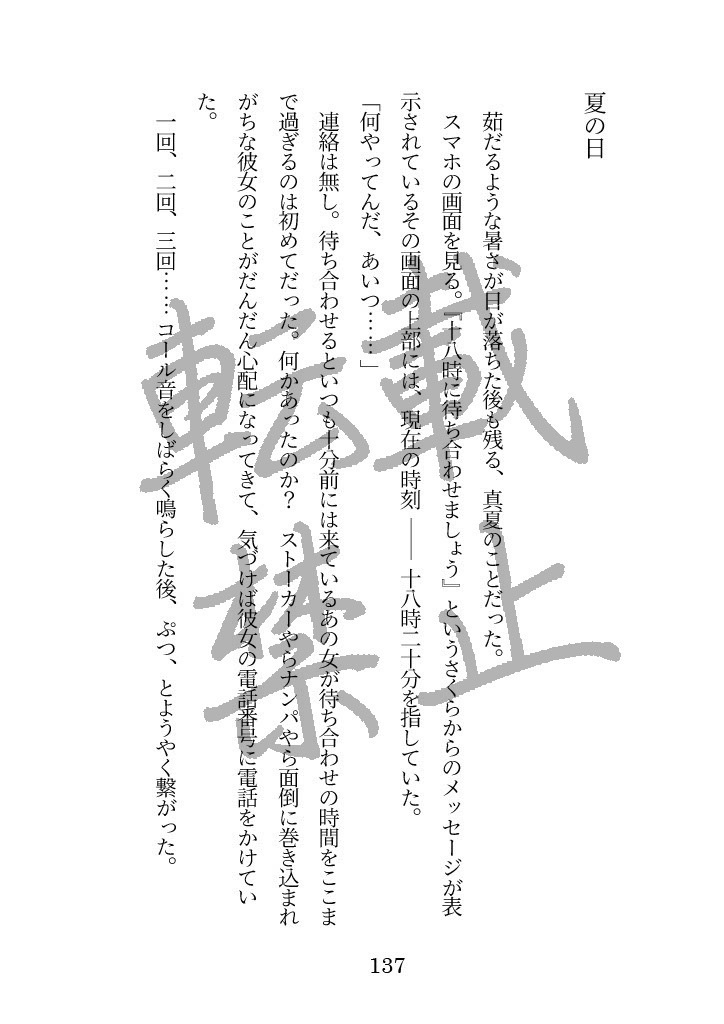 夏の日
茹だるような暑さが日が落ちた後も残る、真夏のことだった。
スマホの画面を見る。『十八時に待ち合わせましょう』というさくらからのメッセージが表
示されているその画面の上部には、現在の時刻――十八時二十分を指していた。
「何やってんだ、あいつ……」
連絡は無し。待ち合わせるといつも十分前には来ているあの女が待ち合わせの時間をここま
で過ぎるのは初めてだった。何かあったのか？　ストーカーやらナンパやら面倒に巻き込まれ
がちな彼女のことがだんだん心配になってきて、気づけば彼女の電話番号に電話をかけてい
た。
一回、二回、三回……コール音をしばらく鳴らした後、ぷつ、とようやく繋がった。
転載
禁止
137